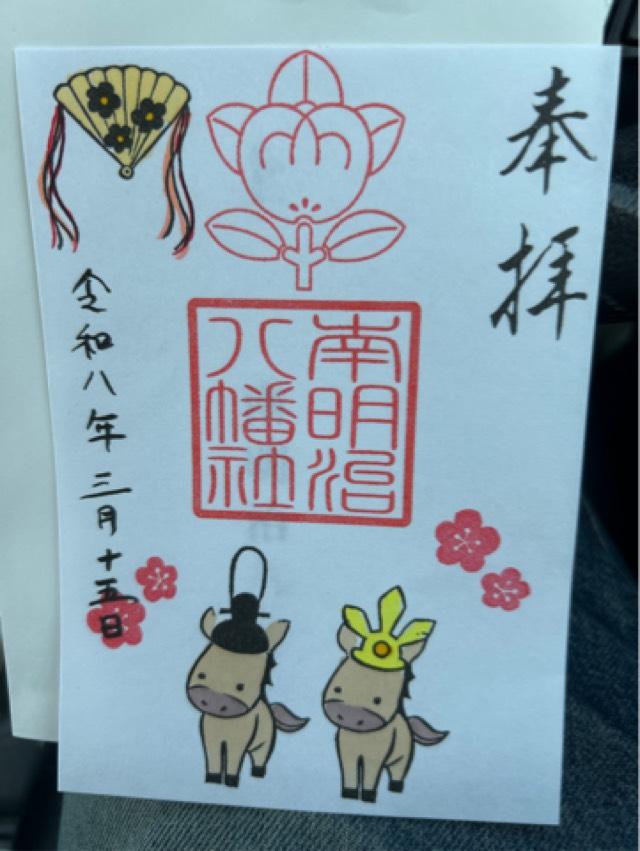 奉拝
南明治
八幡社
令和八年三月十五日